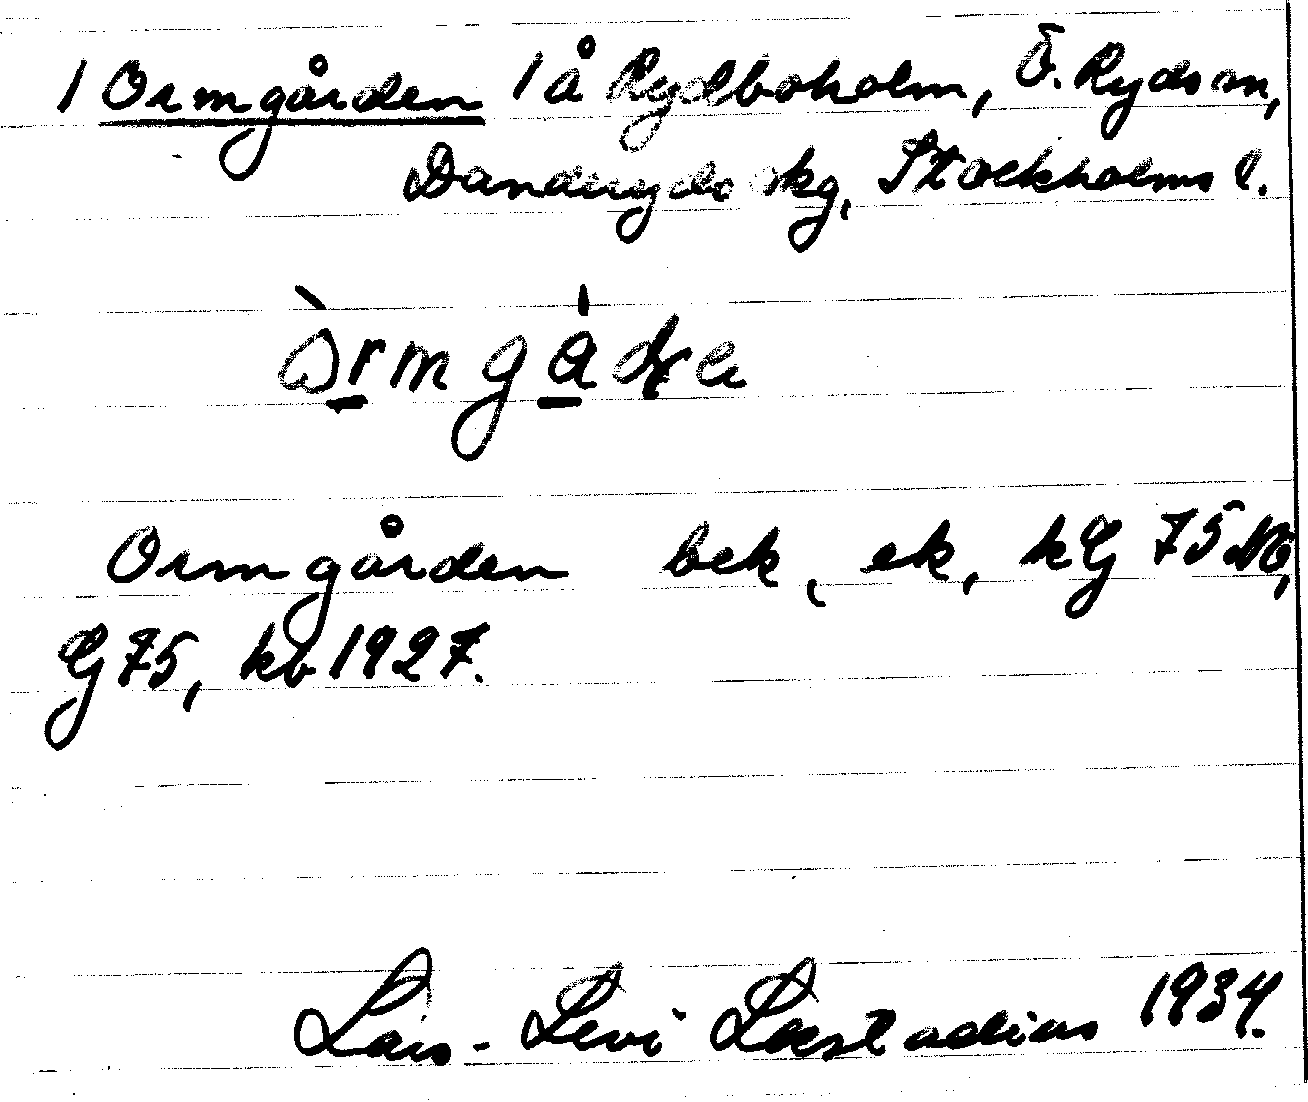 / Ormgården / å Rydboholm, Ö. Ryds sn,
Danderyds skg, Stockholms l.
Ormgården bek, ek, kG 75 NO,
G 75, kb 1927.
Lars-Levi Læstadius 1934.